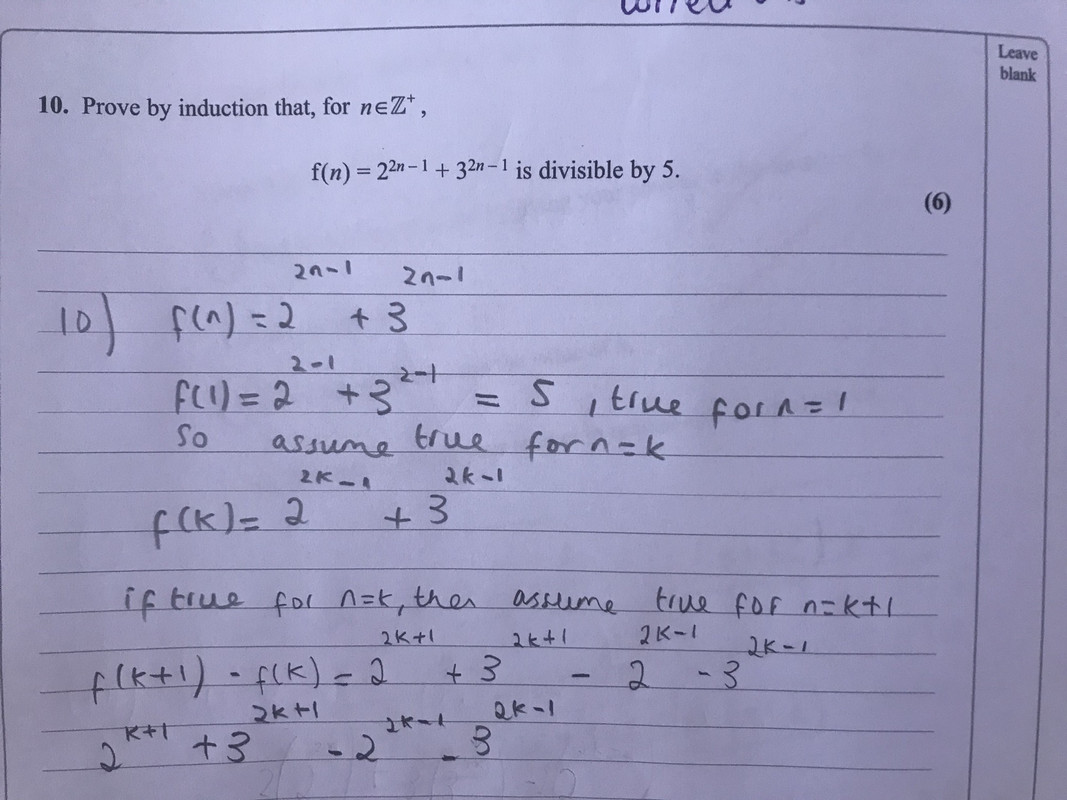 Leave
blank
10. Prove by induction that, for n∈ℤ⁺,
f(n) = 2²ⁿ⁻¹ + 3²ⁿ⁻¹ is divisible by 5.
(6)
10) f(n) = 2²ⁿ⁻¹ + 3²ⁿ⁻¹
f(1) = 2²⁻¹ + 3²⁻¹ = 5 , true for n = 1
so assume true for n = k
f(k) = 2²ᵏ⁻¹ + 3²ᵏ⁻¹
if true for n=k, then assume true for n=k+1
f(k+1) - f(k) = 2²ᵏ⁺¹ + 3²ᵏ⁺¹ - 2²ᵏ⁻¹ - 3²ᵏ⁻¹
2ᵏ⁺¹ + 3²ᵏ⁺¹ - 2²ᵏ⁻¹ - 3²ᵏ⁻¹